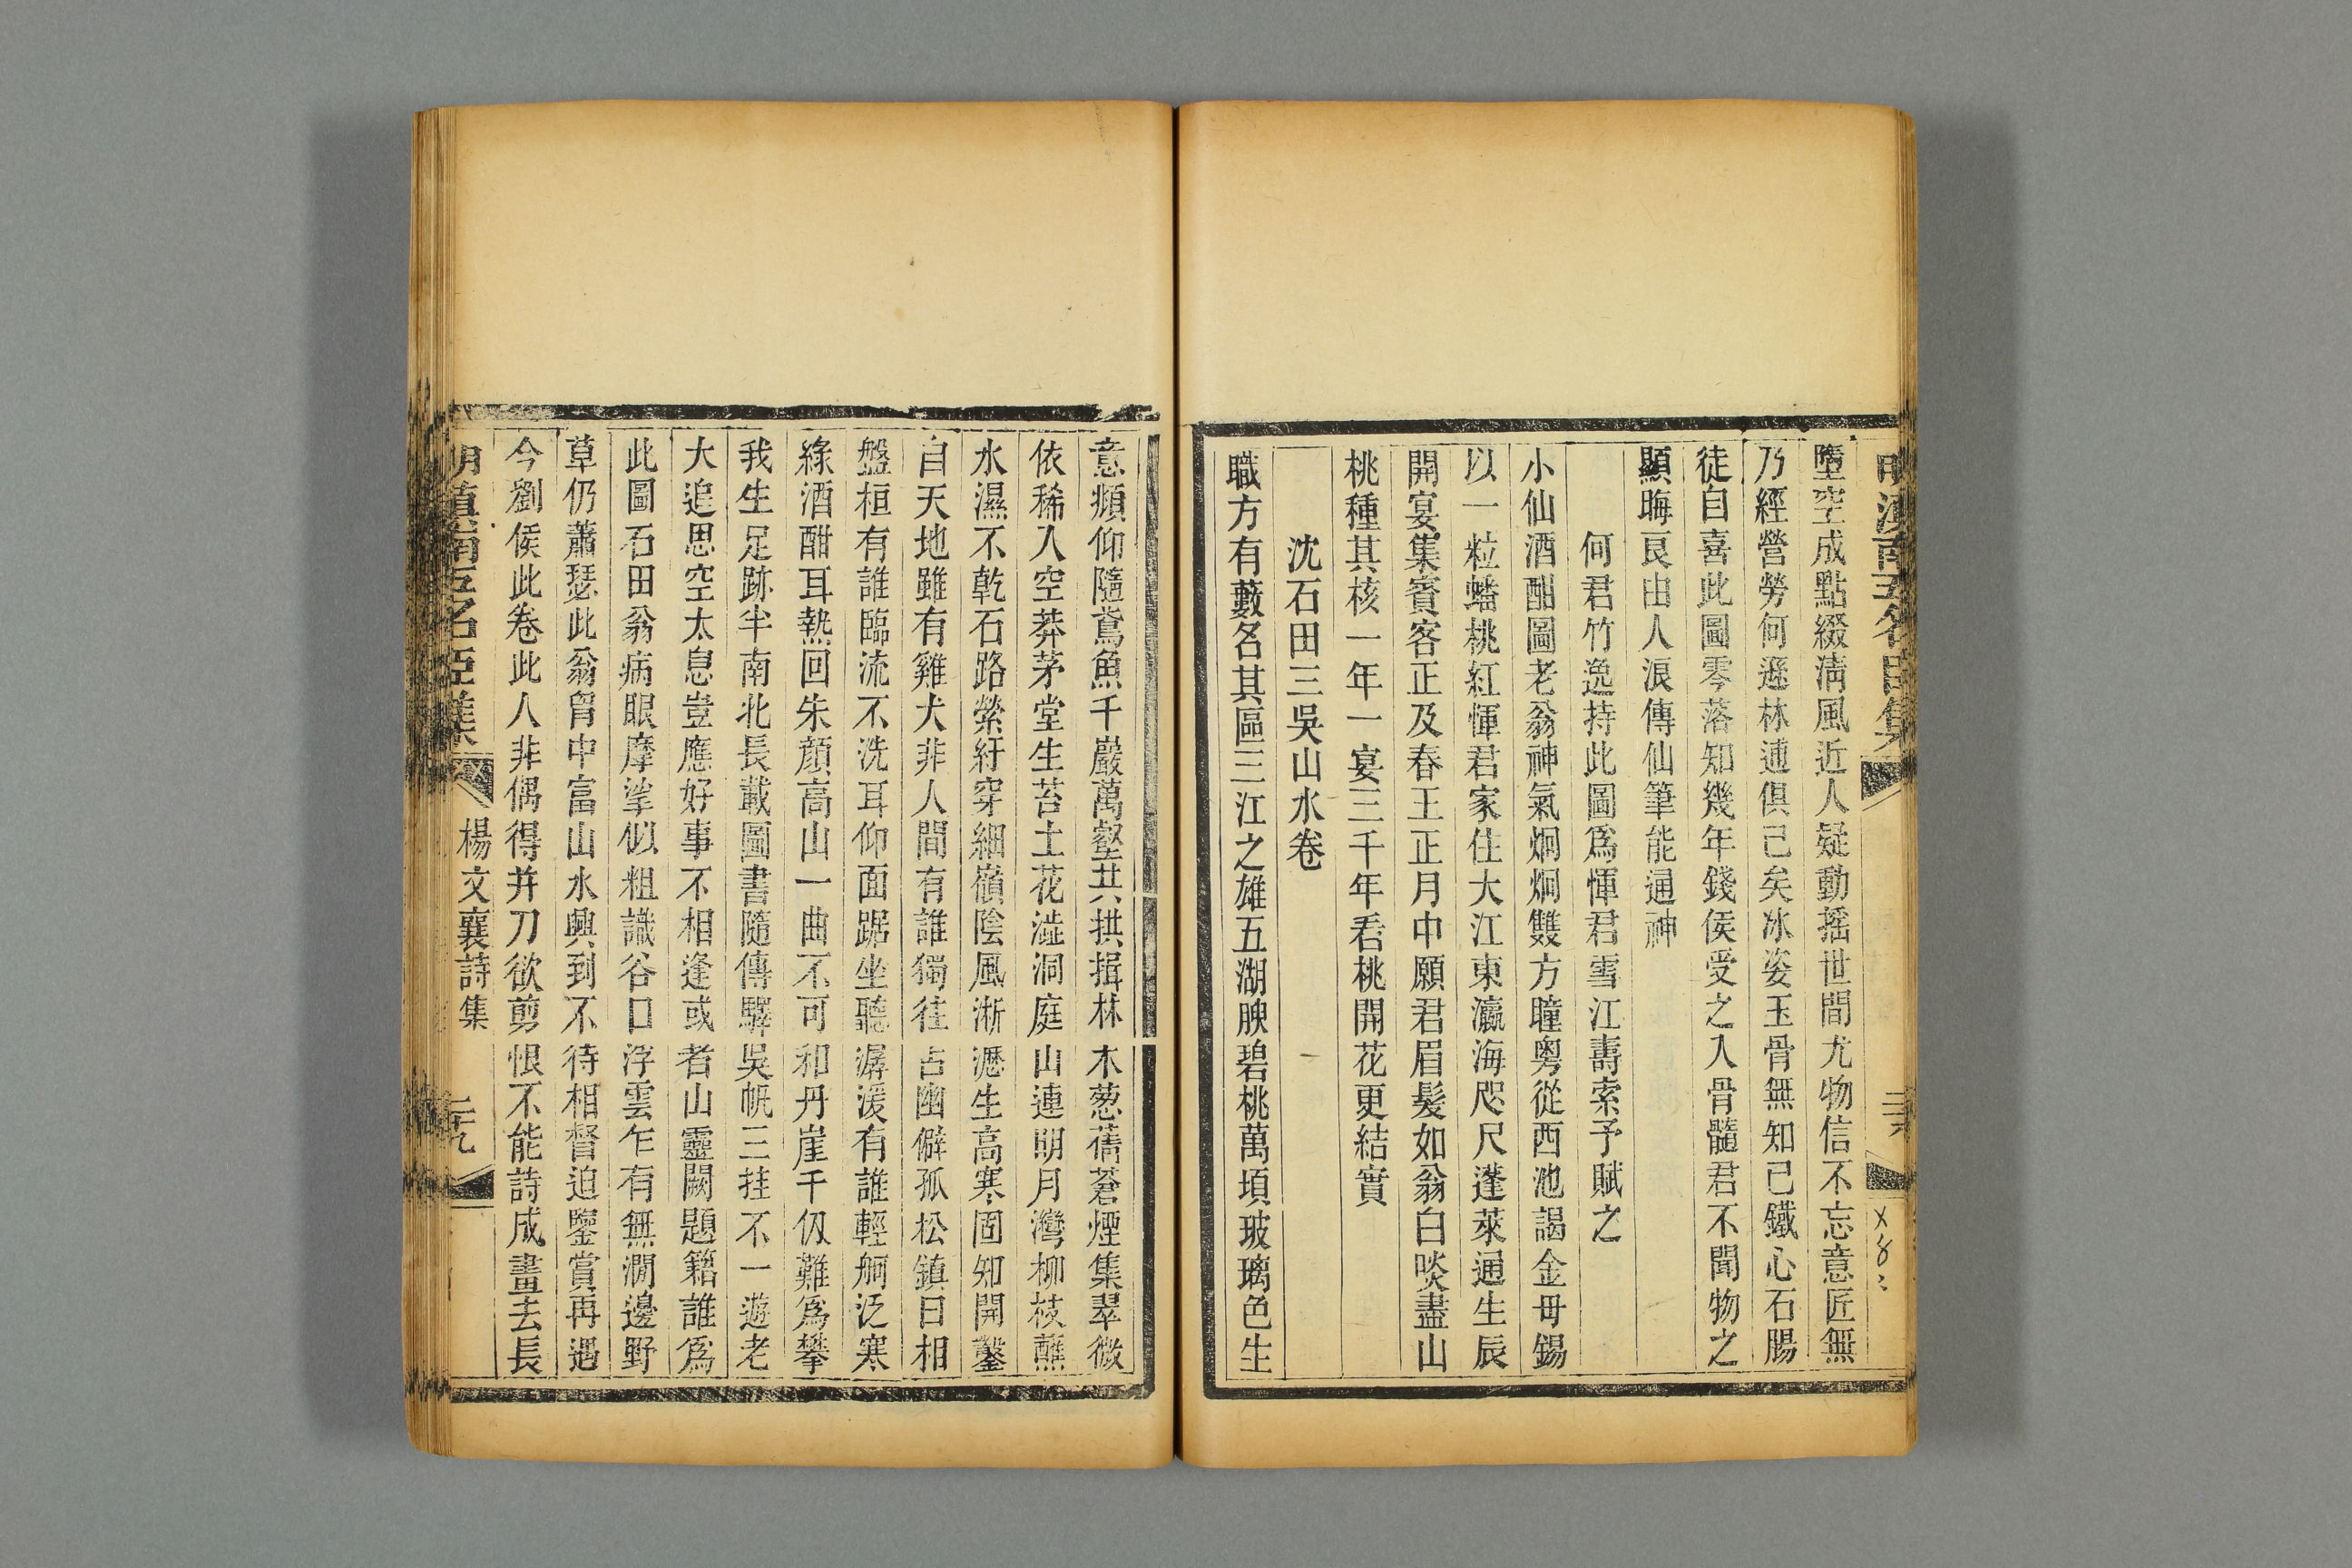 墮空成點綴淸風近人疑動搖世間尤物信不忘意匠無
乃經營勞何遜林逋俱已矣冰姿玉骨無知己鐵心石腸
徒自喜此圖零落知幾年錢侯受之入骨髓君不聞物之
顯晦良由人浪傳仙筆能通神
何君竹逸持此圖爲惲君雪江壽索予賦之
小仙酒酣圖老翁神氣炯炯雙方瞳粤從西池謁金母錫
以一粒蟠桃紅惲君家住大江東瀛海咫尺蓬萊通生辰
開宴集賓客正及春王正月中願君眉髮如翁白啖盡山
桃種其核一年一宴三千年看桃開花更結實
沈石田三吳山水卷
職方有藪名其區三江之雄五湖腴碧桃萬頃玻璃色生
意頫仰隨鳶魚千巖萬壑共拱揖林木葱蒨蒼煙集翠微
依稀入空莽茅堂生苔土花澁洞庭山連明月灣柳枝蘸
水濕不乾石路縈紆穿細嶺陰風淅瀝生高寒固知開鑿
自天地雖有雞犬非人間有誰獨往占幽僻孤松鎮日相
盤桓有誰臨流不洗耳仰面踞坐聽潺湲有誰輕舸泛寒
綠酒酣耳熱回朱顏高山一曲不可和丹崖千仞難爲攀
我生足跡半南北長載圖書隨傳驛吳帆三挂不一遊老
大追思空太息豈應好事不相逢或者山靈闕題籍誰爲
此圖石田翁病眼摩挲似粗識谷口浮雲乍有無澗邊野
草仍蕭瑟此翁胷中富山水興到不待相督迫鑒賞再遇
今劉侯此卷此人非偶得并刀欲剪恨不能詩成畫去長
明滇南五名臣集
楊文襄詩集
三九